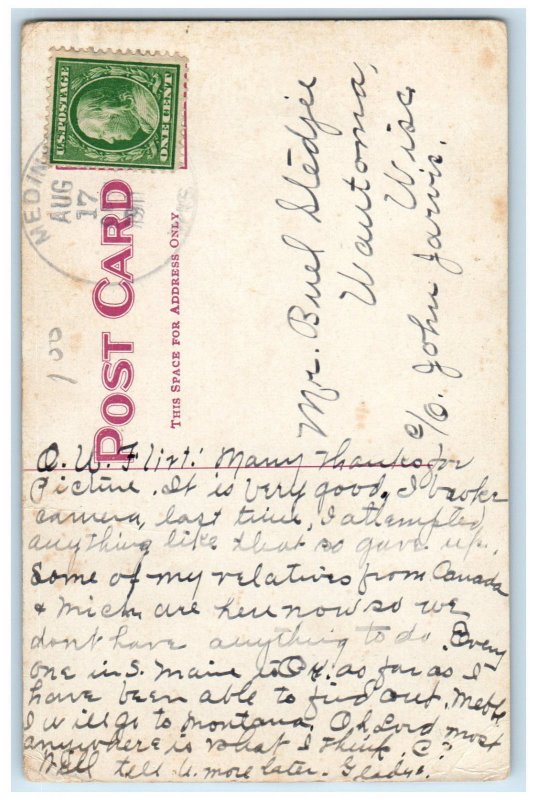 U.S. POSTAGE
ONE CENT
MEDIN
AUG
17
POST CARD
THIS SPACE FOR ADDRESS ONLY
100
Mr. Buel Stedjee
Wautoma,
Wisc.
c/o. John Jarvis.
O. U. Flirt! Many thanks for
picture. It is very good. I broke
camera, last time, I attempted
anything like that so gave up.
Some of my relatives from Canada
& Mich. are here now so we
dont have anything to do. Every
one in S. Maine is O.K. as far as I
have been able to find out. Mebbe
I will go to Montana. Oh Lord most
anywhere is what I think. C?
Will tell U. more later. Gladys.